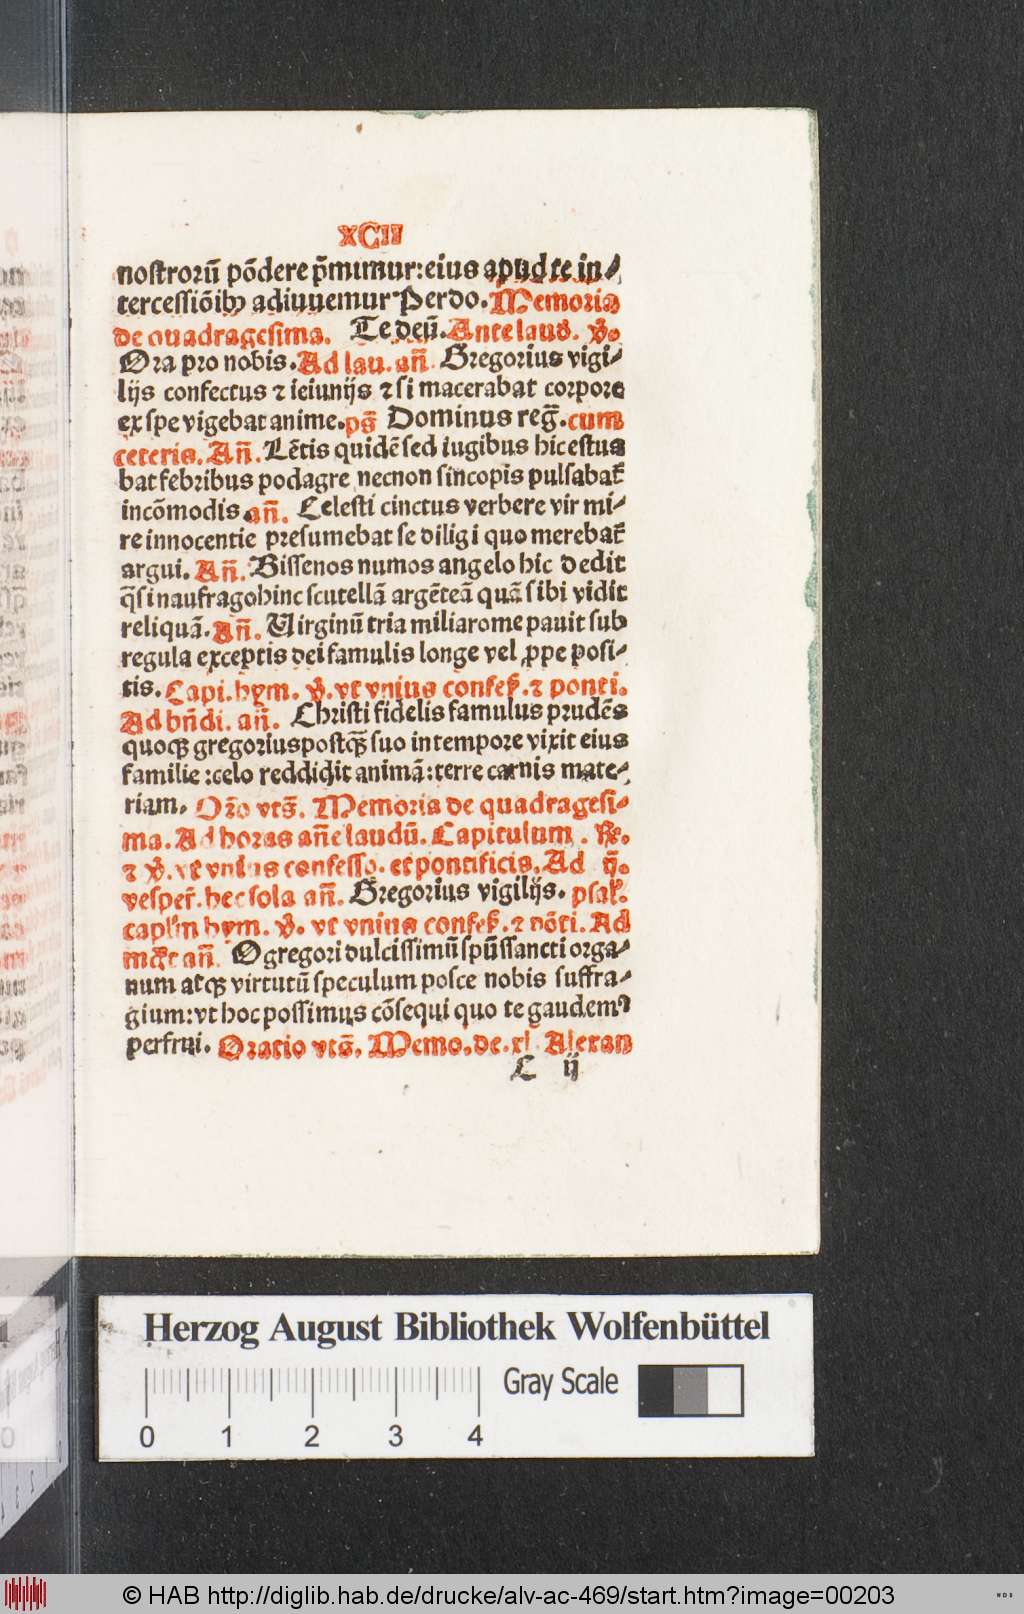 XCII
nostrorū põdere p̄mimur:eius apud te in⸗
tercessiõib₉ adiuuemur Per do. Memoria
de quadragesima. Te deū. Ante laud. v̄.
Ora pro nobis. Ad lau. an̄. Gregorius vigi⸗
lijs confectus ⁊ ieiunijs ⁊ si macerabat corpore
ex spe vigebat anime. ps̄ Dominus reḡ. cum
ceteris. An̄. Lētis quidē sed iugibus hic estua
bat febribus podagre necnon sincopis pulsabat᷑
incõmodis. an̄. Celesti cinctus verbere vir mi⸗
re innocentie presumebat se diligi quo merebat᷑
argui. An̄. Bissenos numos angelo hic dedit
q̄si naufrago hinc scutellā argēteā quā sibi vidit
reliquā. An̄. Uirginū tria milia rome pauit sub
regula exceptis dei famulis longe vel ꝓpe posi⸗
tis. Capi. hym. v̄. vt vnius confes̄. ⁊ ponti.
Ad bn̄di. an̄. Christi fidelis famulus prudēs
quoqꝫ gregorius postqꝫ̄ suo in tempore vixit eius
familie :celo reddidit animā: terre carnis mate⸗
riam. Or̄o vts̄. Memoria de quadragesi⸗
ma. Ad horas an̄e laudū. Capitulum . R̄.
⁊ v̄. vt vnius confesso. et pontificis. Ad ij̄.
vesper̄. hec sola an̄. Gregorius vigilijs. psal̄.
caplm̄ hym. v̄. vt vnius confes̄. ⁊ põti. Ad
an̄. O gregori dulcissimū spūssancti orga⸗
num atqꝫ virtutū speculum posce nobis suffra⸗
gium: vt hoc possimus cõsequi quo te gaudem⁹
perfrui. Oratio vts̄. Memo. de. xl. Alexan
L ij
Herzog August Bibliothek Wolfenbüttel
Gray Scale
0 1 2 3 4
© HAB http://diglib.hab.de/drucke/alv-ac-469/start.htm?image=00203